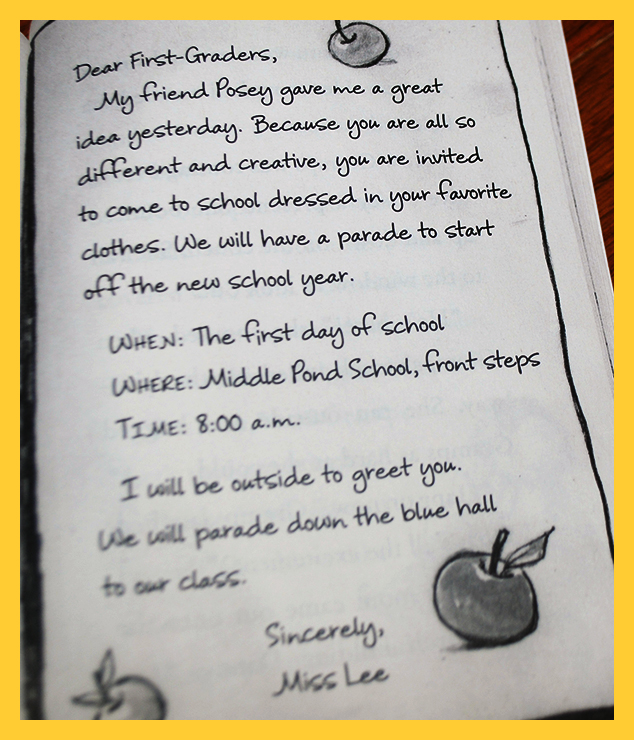 Dear First-Graders,
My friend Posey gave me a great
idea yesterday. Because you are all so
different and creative, you are invited
to come to school dressed in your favorite
clothes. We will have a parade to start
off the new school year.
WHEN: The first day of school
WHERE: Middle Pond School, front steps
TIME: 8:00 a.m.
I will be outside to greet you.
We will parade down the blue hall
to our class.
Sincerely,
Miss Lee